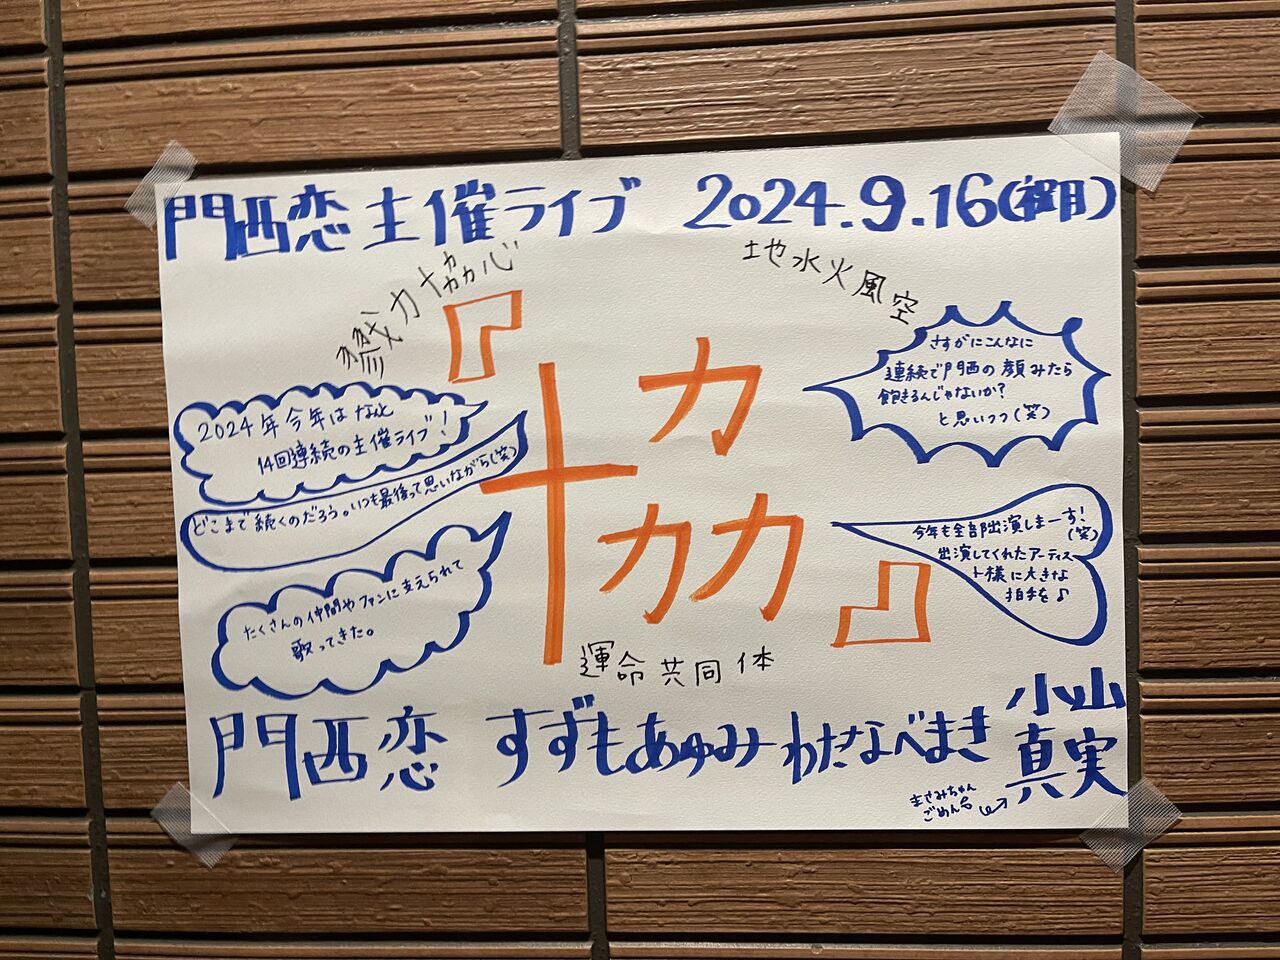 門西恋 主催ライブ 2024.9.16(祝月)
戮力協心
地水火風空
『協』
2024年今年はなんと
14回連続の主催ライブ!
どこまで続くのだろう。いつも最後って思いながら(笑)
たくさんの仲間やファンに支えられて
歌ってきた。
さすがにこんなに
連続で門西の顔みたら
飽きるんじゃないか?
と思いつつ(笑)
今年も全部出演しまーす!
(笑)
出演してくれたアーティス
ト様に大きな
拍手を♪
運命共同体
門西恋 すずきあゆみ わたなべまき 小山
真実
まさみちゃん
ごめん